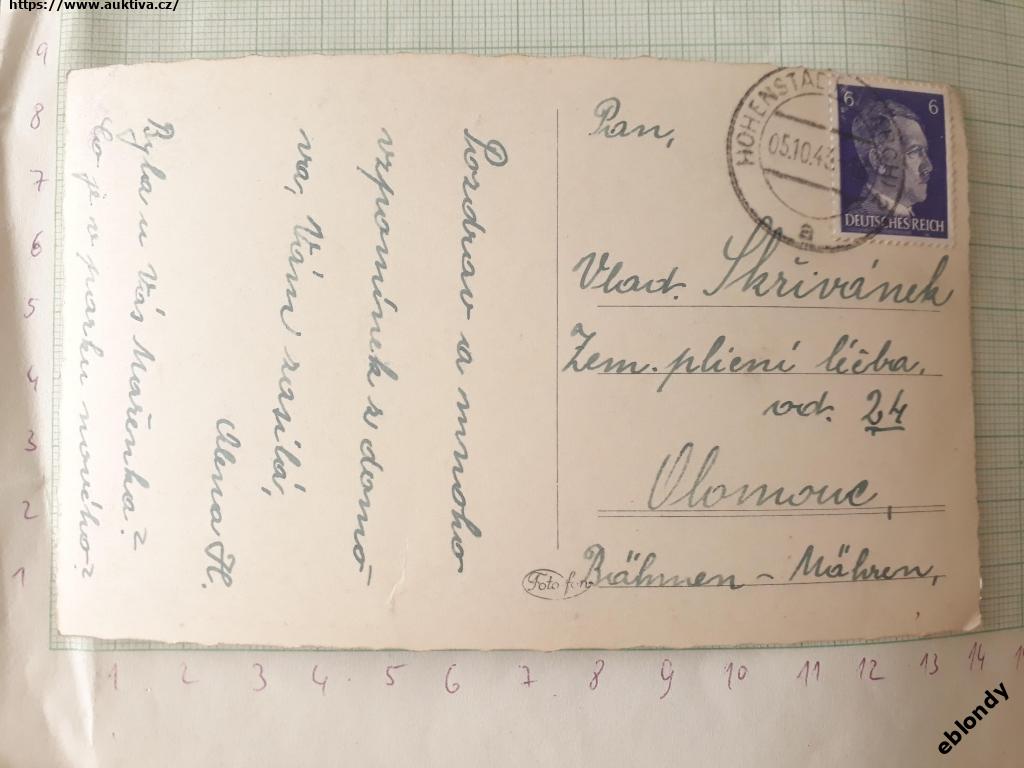 https://www.auktiva.cz/
Pozdrav a mnoho
vzpomínek z domo-
va, Vám zasílá,
Alena H.
Byla u Vás Mařenka?
Co je v parku nového?
Pan,
HOHENSTADT
05.10.43
a
6 6
DEUTSCHES REICH
Vlad. Skřivánek
Zem. plicní léčba,
od. 24
Olomouc,
Bähmen - Mähren,
Foto fon
9
8
7
6
5
4
3
2
1
1 2 3 4 5 6 7 8 9 10 11 12 13 14
eblondy